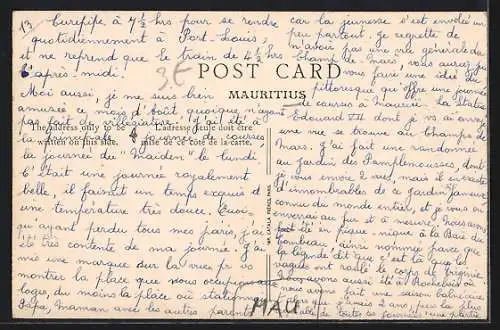 13
Curepipe à 7½ hrs pour se rendre
quotidiennement à Port-Louis;
il ne reprend que le train de 4½ hrs
l'après-midi.
3E
POST CARD
MAURITIUS
The address only to be
written on this side.
L'adresse seule doit être
mise de ce côté de la carte.
Moi aussi, je me suis bien
amusée ce mois d'août quoique n'ayant
pas fait de villégiature. J'ai été à
la principale journée des courses,
la journée du "Maiden" le lundi.
C'était une journée royalement
belle, il faisait un temps exquis &
une température très douce. Quoi-
qu'ayant perdu tous mes paris, j'ai
été très contente de ma journée. J'ai
mis une marque sur la vue pr vs
montrer la place que nous occupions aux
loges, du moins la place où stationnait
Papa, Maman avec les autres parents
car la jeunesse s'est envolée un
peu partout. Je regrette de
n'avoir pas une vue générale du
Champ-de-Mars, vous auriez pu
vous faire une idée du
pittoresque qu'offre une journée
de courses à Maurice. La Statue
Edouard VII dont je vs ai envoyé
une vue se trouve au Champ de
Mars. J'ai fait une randonnée
au Jardin des Pamplemousses, dont
je vs ai envoyé 2 vues, mais il existe
d'innombrables de ce jardin fameux
connu du monde entier, et je vs en
enverrai au fur et à mesure. Nous avons
été en pique-nique à la Baie du
Tombeau, ainsi nommée parce que
la légende dit que c'est là que les
vagues ont roulé le corps de Virginie.
Nous avons aussi été à
nous avons fait une saison balnéaire
MAU